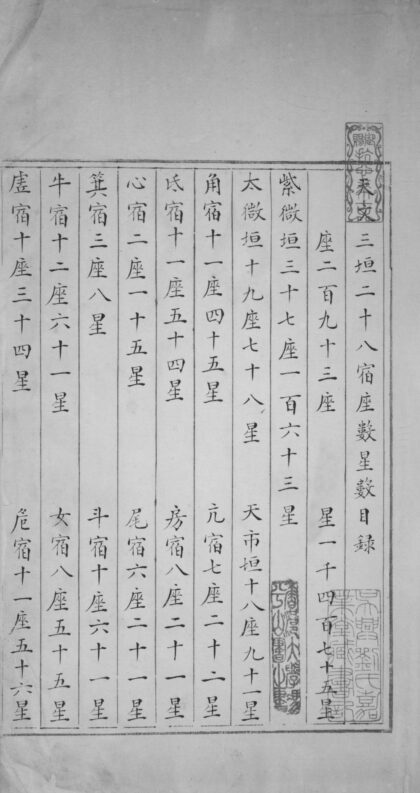 三垣二十八宿座數星數目錄
座二百九十三座 星一千四百七十五星
紫微垣三十七座一百六十三星
太微垣十九座七十八星 天市垣十八座九十一星
角宿十一座四十五星 亢宿七座二十二星
氐宿十一座五十四星 房宿八座二十一星
心宿二座一十五星 尾宿六座二十一星
箕宿三座八星 斗宿十座六十一星
牛宿十二座六十一星 女宿八座五十五星
虛宿十座三十四星 危宿十一座五十六星